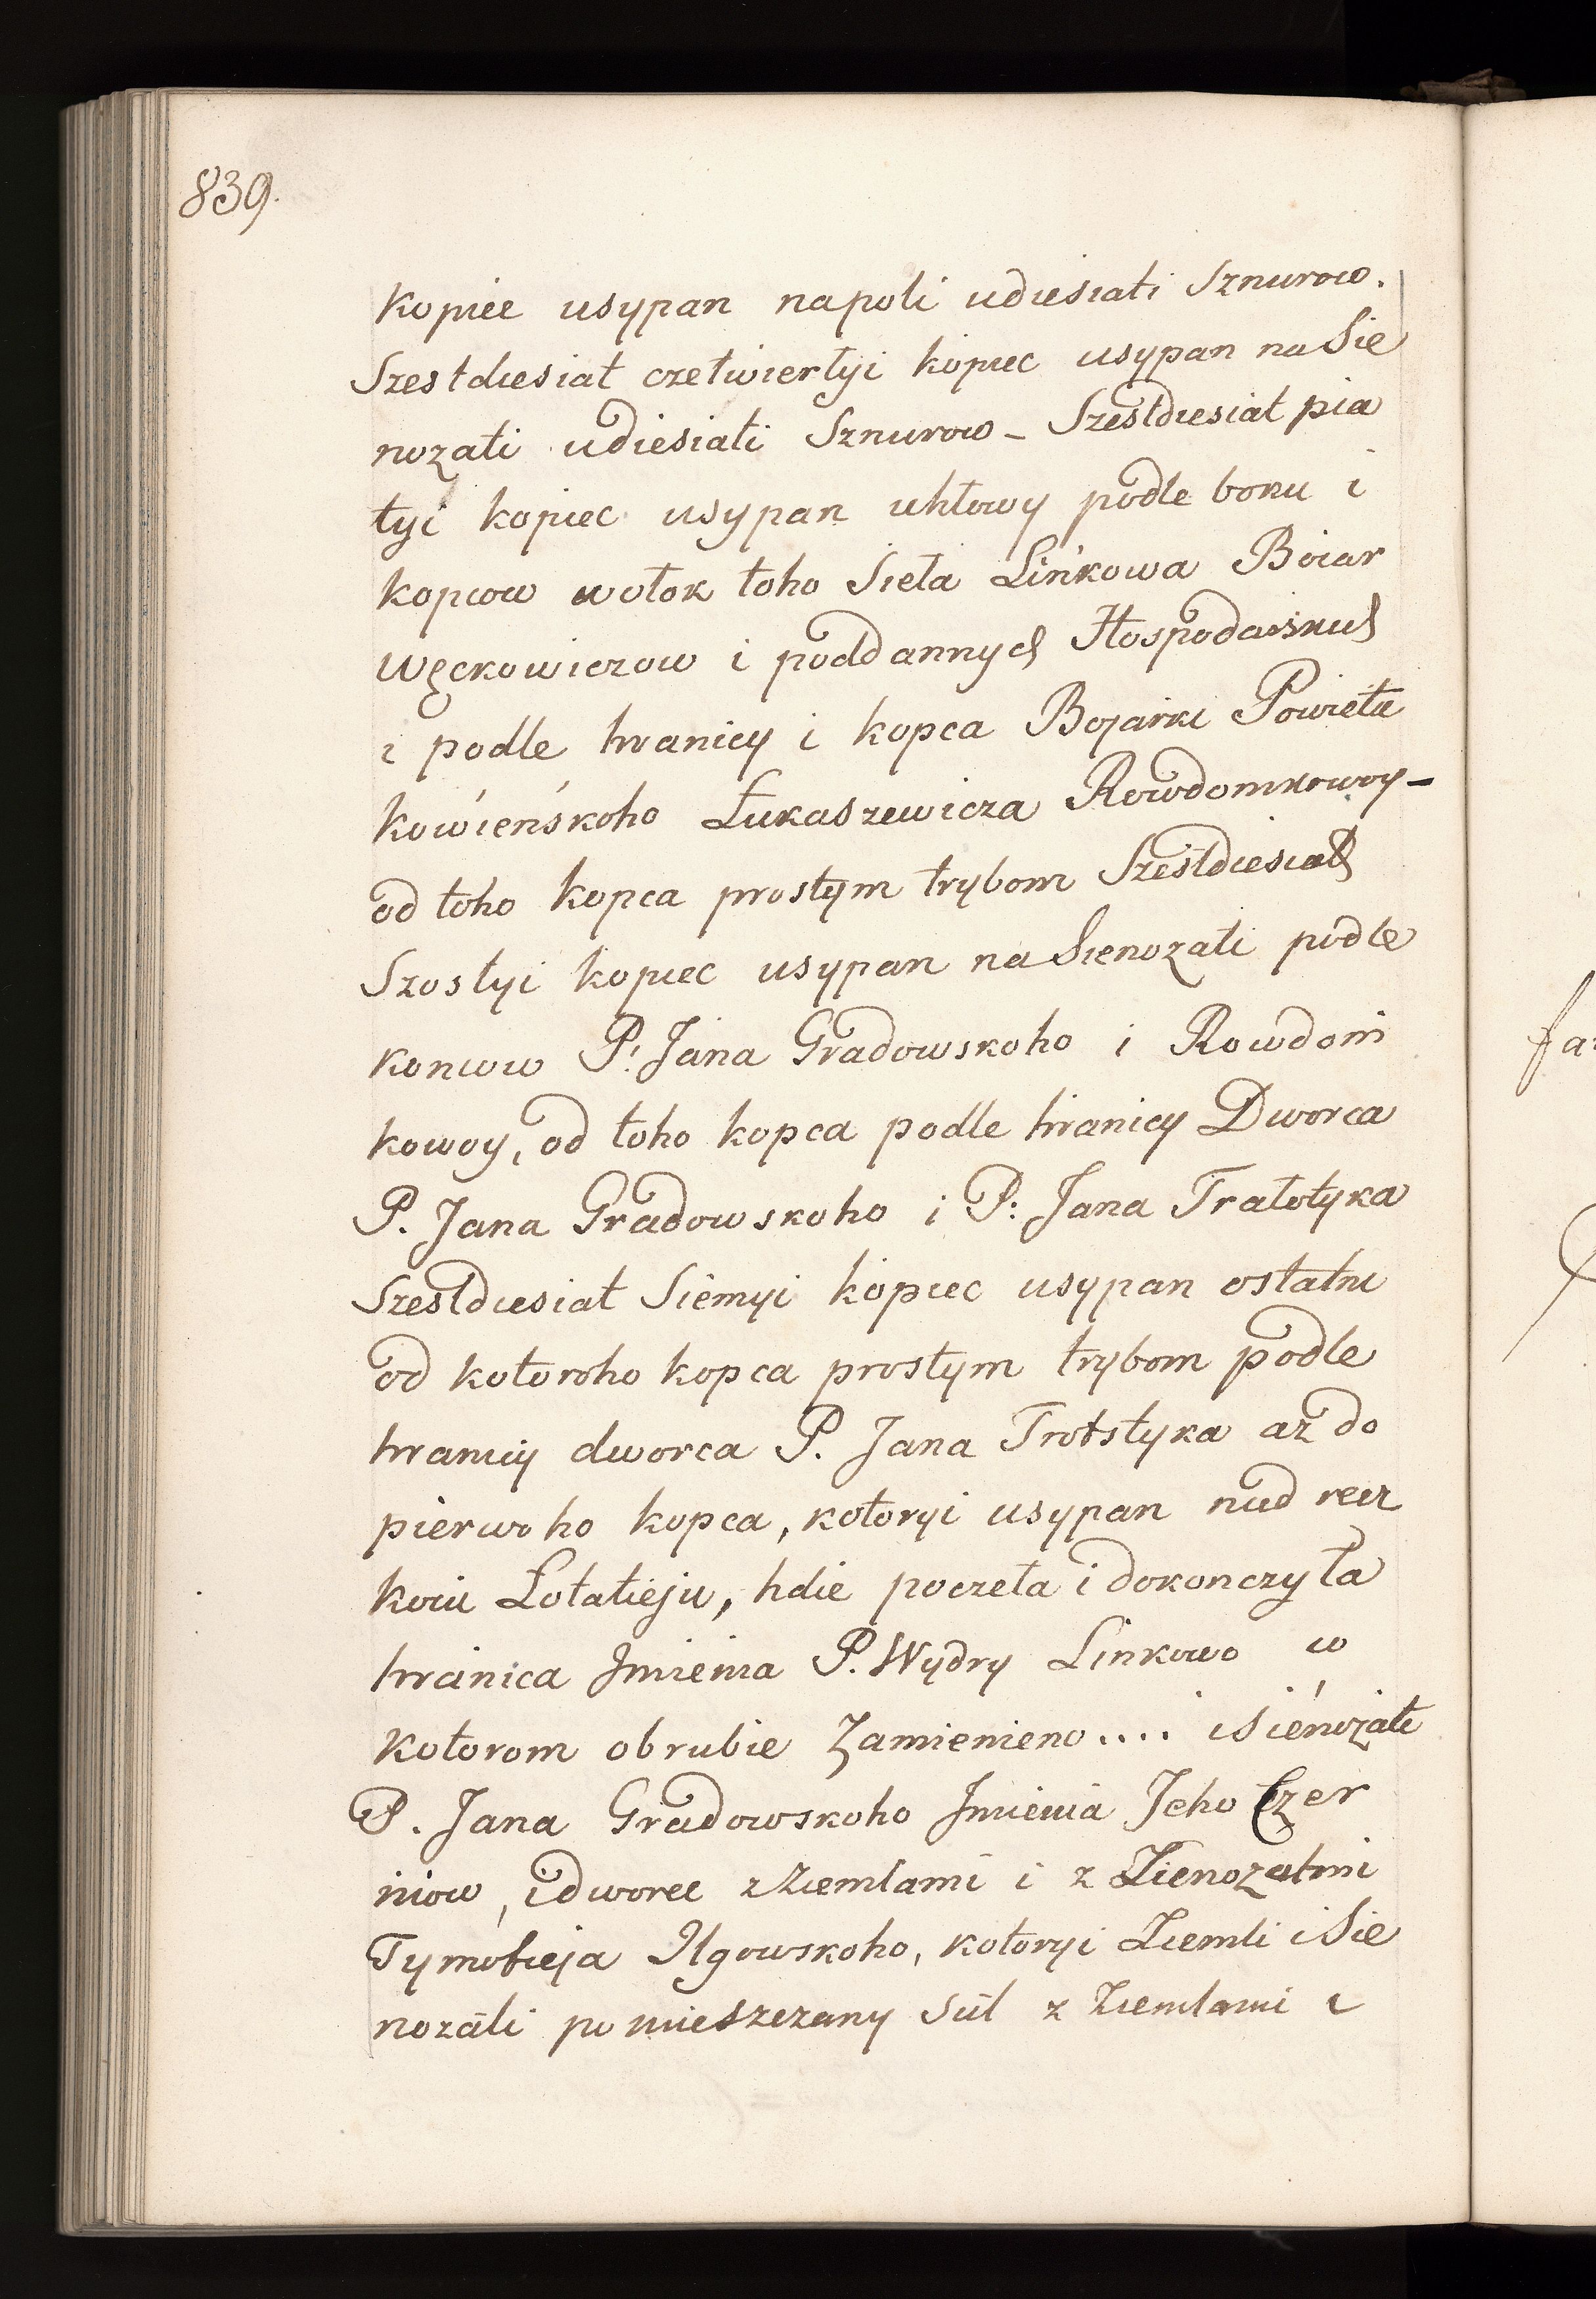 839.
kopiec usypan napoli udiesiati Sznurow.
Szestdiesiat czetwiertyi kopiec usypan na Sie
nozati udiesiati Sznurow – Szestdiesiat pia
tyi kopiec usypan uhłowy podle boku i
kopcow wołok toho Sieła Linkowa Boiar
Węckowiczow i poddannych Hospodarskich
i podle hranicy i kopca Bojarki Powietu
Kowieńskoho Łukaszewicza Rowdomkowoy –
od toho kopca prostym trybom Szestdiesiat
Szostyi kopiec usypan na Sienozati podle
koncow P: Jana Gradowskoho i Rowdom
kowoy, od toho kopca podle hranicy Dworca
P. Jana Gradowskoho i P: Jana Tratotyka
Szestdiesiat Siemyi kopiec usypan ostatni
od kotoroho kopca prostym trybom podle
hranicy dworca P. Jana Trotstyka aż do
pierwoho kopca, kotoryi usypan nad recz
koiu Łotatieju, hdie poczeła i dokonczyła
hranica Jmienia P. Wydry Linkowo w
kotorom obrubie Zamienieno .... i Siénożati
P. Jana Gradowskoho Jmienia Jeho Czer
niow, i dworec z Ziemlami i z Sienozatmi
Tymofieja Ilgowskoho, kotoryi Ziemli i Sie
nozáti pomieszczany Sut z Ziemlami i
fa